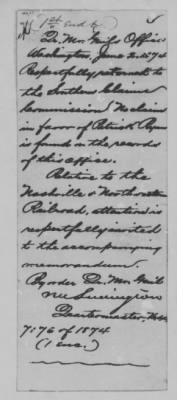 1st End t
Qr. Mr. Genl's Office
Washington, June 2. 1874
Respectfully returned to
the Southern Claims
Commission. No claim
in favor of Patrick
is found in the records
of this office.
Relative to the
Nashville & Northwestern
Railroad, attention is
respectfully invited
to the accompanying
memorandum.
By order Qr. Mr. Genl
Quartermaster,
7176 of 1874
(1 Enc.)